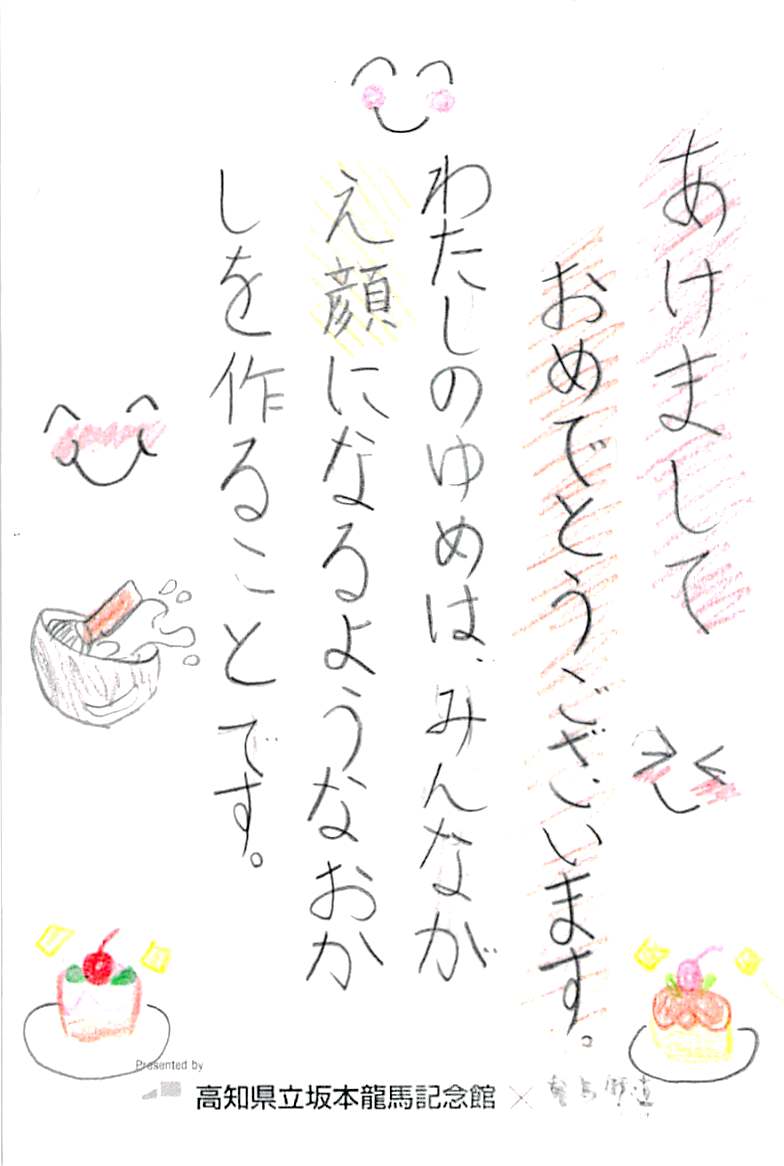 あけまして
おめでとうございます。
わたしのゆめは、みんなが
え顔になるようなおか
しを作ることです。
Presented by
高知県立坂本龍馬記念館 ×